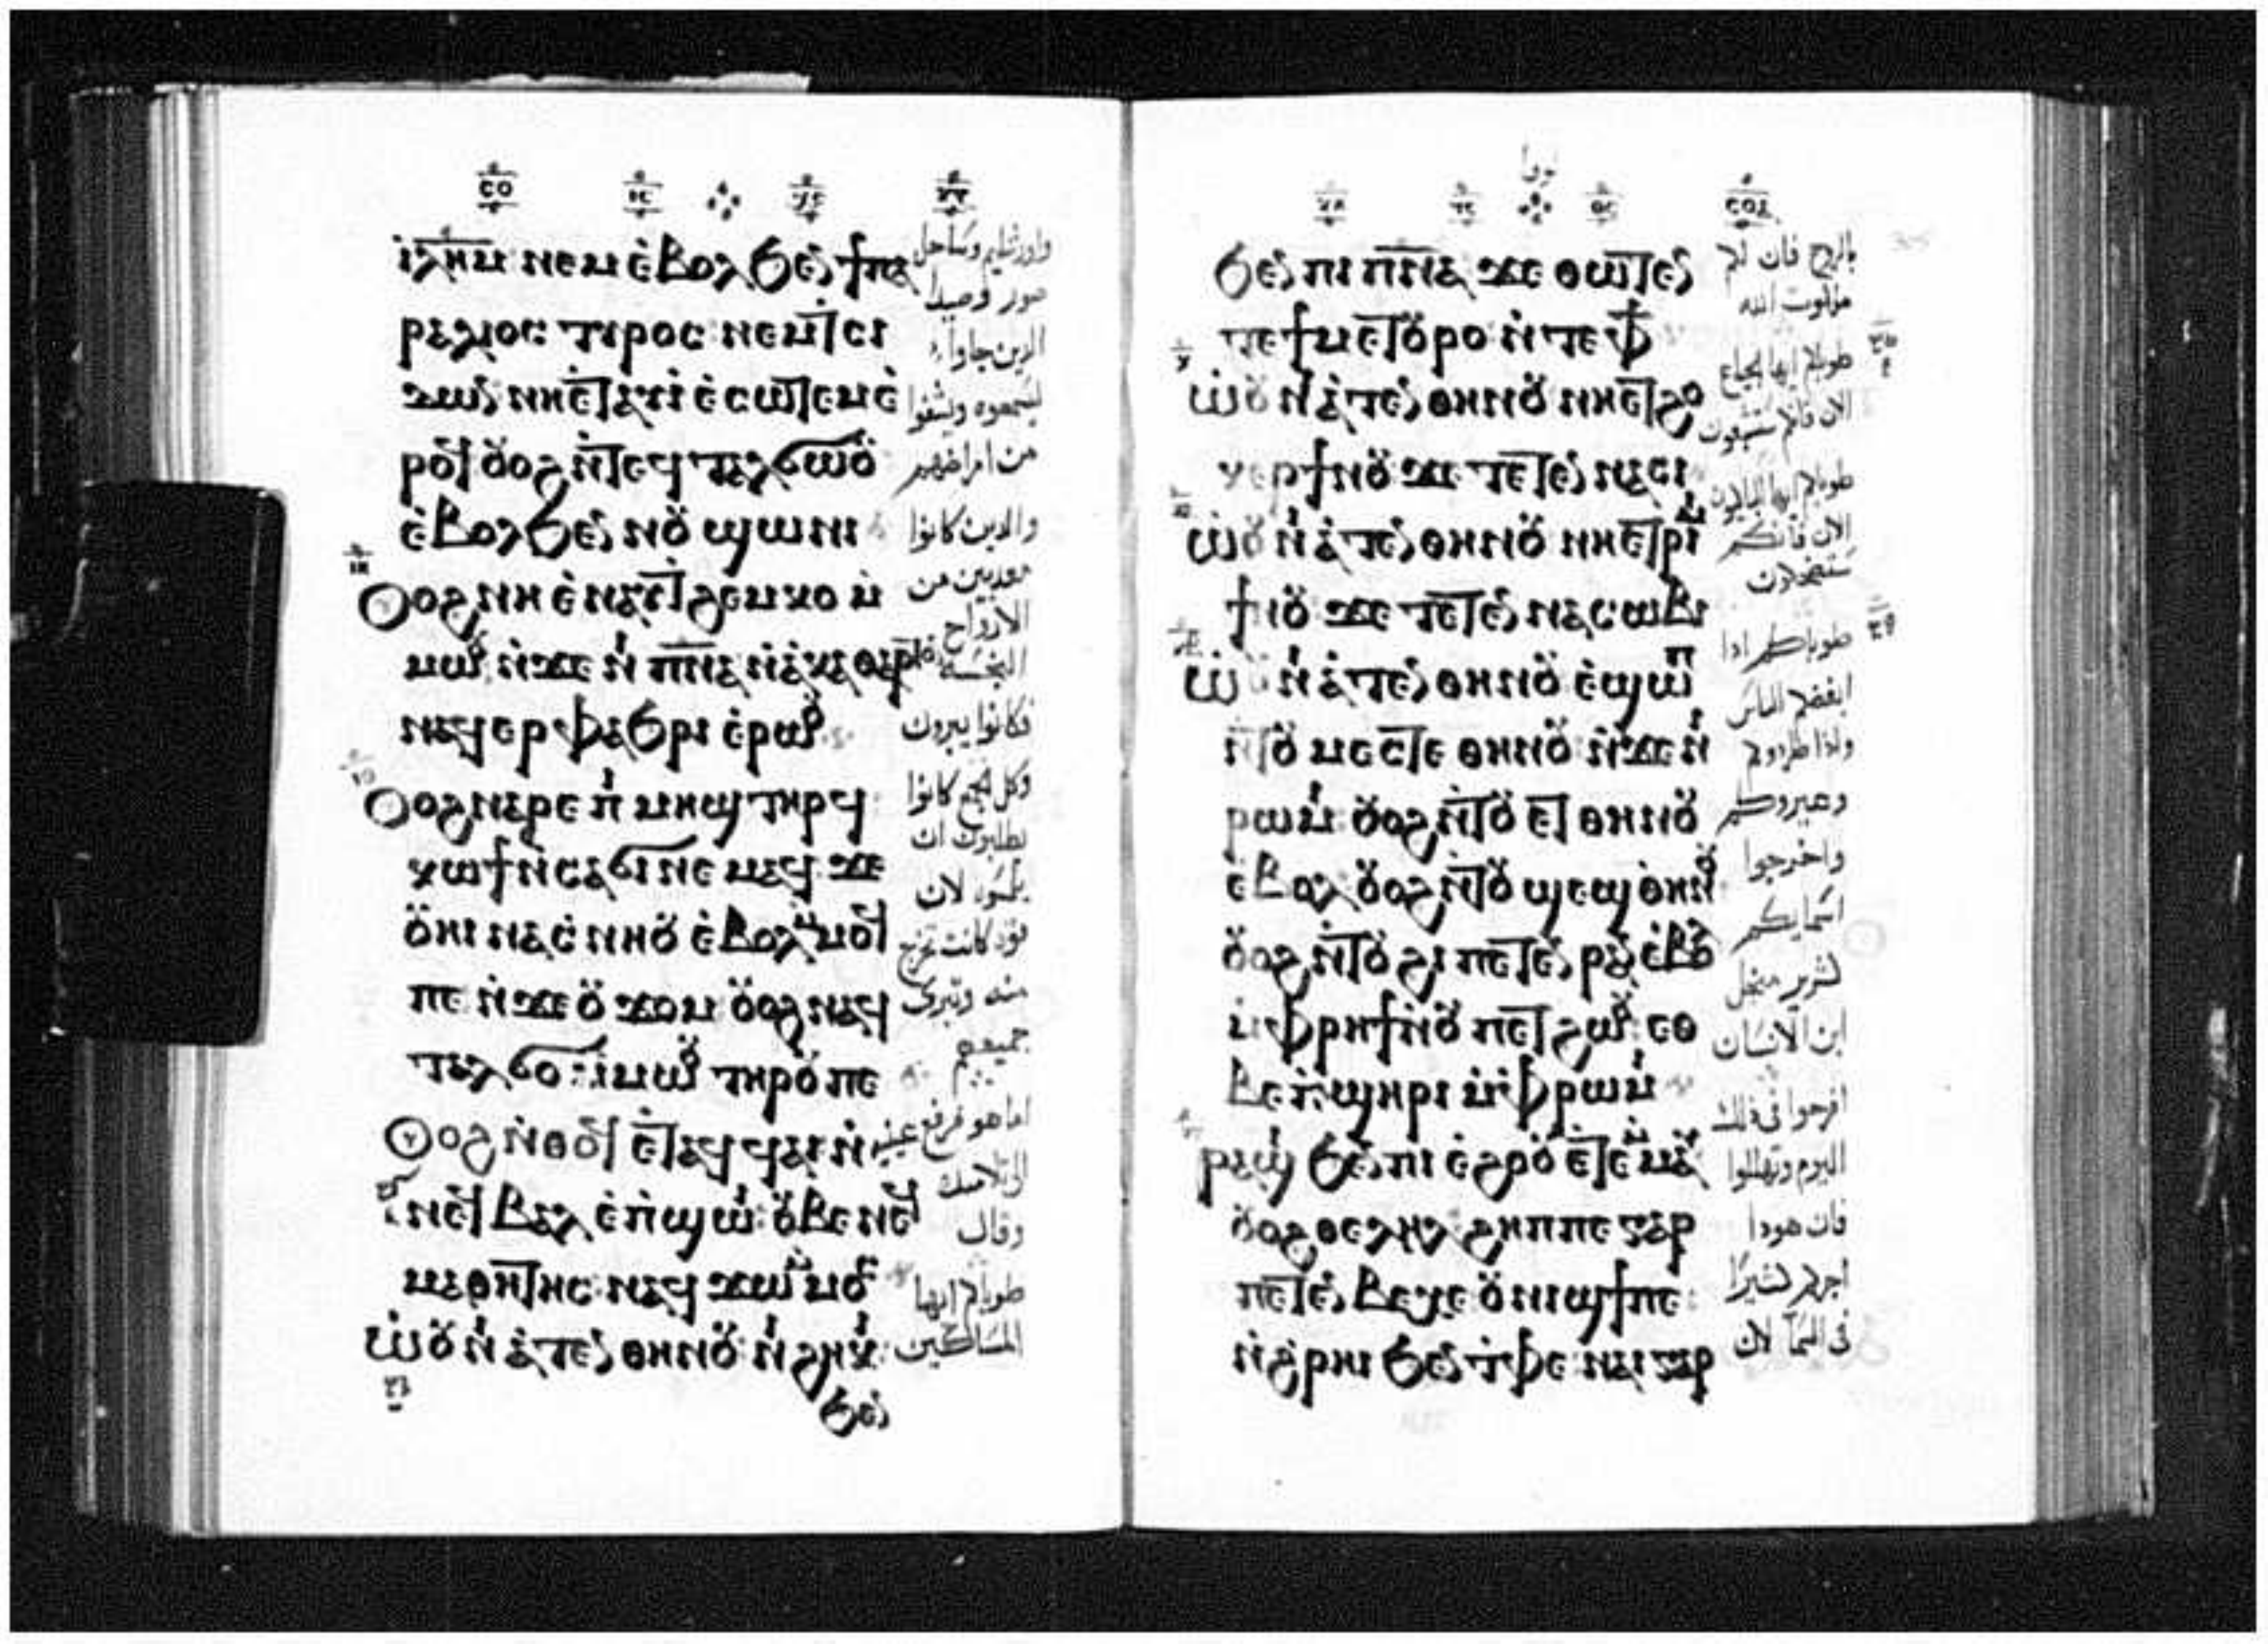 ⲥⲟ
ⲓⲗⲏⲙ ⲛⲉⲙ ⲉ̀ⲃⲟⲗ ϧⲉⲛ ϯⲡⲁ
ⲣⲁⲗⲓⲟⲥ ⲧⲩⲣⲟⲥ ⲛⲉⲙ ⲧⲥⲓ
ⲇⲱⲛ ⲛⲏⲉⲧⲁⲩⲓ̀ ⲉ̀ⲥⲱⲧⲉⲙ ⲉ̀
ⲣⲟϥ ⲟⲩⲟϩ ⲛ̀ⲧⲉϥⲧⲁⲗϭⲱⲟⲩ
ⲉ̀ⲃⲟⲗ ϧⲉⲛ ⲛⲟⲩϣⲱⲛⲓ
ⲟⲩⲟϩ ⲛⲏ ⲉ̀ⲛⲁⲩⲧϩⲉⲙⲕⲟ ⲙ̀
ⲙⲱⲟⲩ ⲛ̀ϫⲉ ⲛⲓ ⲡ̅ⲛ̅ⲁ̅ ⲛ̀ⲁⲕⲁⲑⲁⲣⲧⲟⲛ
ⲛⲁϥⲉⲣⲫⲁϧⲣⲓ ⲉ̀ⲣⲱⲟⲩ
ⲟⲩⲟϩ ⲛⲁⲣⲉ ⲡⲓⲙⲏϣ ⲧⲏⲣϥ
ⲕⲱϯ ⲛ̀ⲥⲁ ϭⲓ ⲛⲉⲙⲁϥ ϫⲉ
ⲟⲩⲏⲓ ⲛⲁⲥⲛⲏⲟⲩ ⲉ̀ⲃⲟⲗ ⲙ̀ⲙⲟϥ
ⲡⲉ ⲛ̀ϫⲉ ⲟⲩϫⲟⲙ ⲟⲩⲟϩ ⲛⲁϥ
ⲧⲁⲗϭⲟ ⲙ̀ⲙⲱⲟⲩ ⲧⲏⲣⲟⲩ ⲡⲉ
ⲟⲩⲟϩ ⲛ̀ⲑⲟϥ ⲉ̀ⲧⲁϥϥⲁⲓ ⲛ̀
ⲛⲉϥⲃⲁⲗ ⲉ̀ⲡϣⲱⲓ ⲟⲩⲃⲉ ⲛⲉϥ
ⲙⲁⲑⲏⲧⲏⲥ ⲛⲁϥϫⲱ ⲙ̀ⲙⲟⲥ
ⲱ̀ⲟⲩⲛⲓⲁ̀ⲧⲉⲛ ⲑⲏⲛⲟⲩ ⲛⲓϩⲏⲕⲓ
ϧⲉⲛ
واورشليم وساحل
صور وصيدا
الدين جاوا
ليسمعوه ويشفوا
من امراضهم
والدين كانوا
معدبين من
الارواح
النجسه
فكانوا يبرون
وكل الجمع كانوا
يطلبون ان
يلمسوه لان
قوه كانت تخرج
منه وتبرى
جميعهم
اما هو فرفع عينيه
الى تلاميده
وقال
طوباكم ايها
المساكين
ⲥⲟⲁ
ϧⲉⲛ ⲡⲓ ⲡ̅ⲛ̅ⲁ̅ ϫⲉ ⲑⲱⲧⲉⲛ
ⲧⲉ ϯⲙⲉⲧⲟⲩⲣⲟ ⲛ̀ⲧⲉ ⲫϯ
ⲱ̀ⲟⲩⲛⲓⲁ̀ⲧⲉⲛ ⲑⲏⲛⲟⲩ ⲛⲏⲉⲧϩⲟ
ⲕⲉⲣ ϯⲛⲟⲩ ϫⲉ ⲧⲉⲧⲉⲛⲛⲁⲥⲓ
ⲱ̀ⲟⲩⲛⲓⲁ̀ⲧⲉⲛ ⲑⲏⲛⲟⲩ ⲛⲏⲉⲧⲣⲓⲙⲓ
ϯⲛⲟⲩ ϫⲉ ⲧⲉⲧⲉⲛⲛⲁⲥⲱⲃⲓ
ⲱ̀ⲟⲩⲛⲓⲁ̀ⲧⲉⲛ ⲑⲏⲛⲟⲩ ⲉ̀ϣⲱⲡ
ⲛ̀ⲧⲟⲩⲙⲉⲥⲧⲉ ⲑⲏⲛⲟⲩ ⲛ̀ϫⲉ ⲛⲓ
ⲣⲱⲙⲓ ⲟⲩⲟϩ ⲛ̀ⲧⲟⲩⲉⲧ ⲑⲏⲛⲟⲩ
ⲉ̀ⲃⲟⲗ ⲟⲩⲟϩ ⲛ̀ⲧⲟⲩϣⲉϣ ⲑⲏⲛⲟⲩ
ⲟⲩⲟϩ ⲛ̀ⲧⲟⲩϩⲓ ⲡⲉⲧⲉⲛⲣⲁⲛ ⲉ̀ⲃⲟⲗ
ⲙ̀ⲫⲣⲏϯ ⲛ̀ⲟⲩⲡⲉⲧϩⲱⲟⲩ ⲉⲑ
ⲃⲉ ⲡϣⲏⲣⲓ ⲙ̀ⲫⲣⲱⲙⲓ
ⲣⲁϣⲓ ϧⲉⲛ ⲡⲓⲉ̀ϩⲟⲟⲩ ⲉⲧⲉⲙⲙⲁⲩ
ⲟⲩⲟϩ ⲑⲉⲗⲏⲗ ϩⲏⲡⲡⲉ ⲅⲁⲣ
ⲡⲉⲧⲉⲛⲃⲉⲭⲉ ⲟⲩⲛⲓϣϯ ⲡⲉ
ⲛ̀ϩ̀ⲣⲏⲓ ϧⲉⲛ ⲧⲫⲉ ⲛⲁⲓ ⲅⲁⲣ
بالروح فان لكم
ملكوت الله
طوباكم ايها الجياع
الان فانكم ستشبعون
طوباكم ايها الباكون
الان فانكم
ستضحكون
طوباكم ادا
ابغضكم الناس
وادا طردوكم
وعيروكم
واخرجوا
اسمايكم
كشرير من اجل
ابن الانسان
افرحوا في ذلك
اليوم وتهللوا
فان هودا
اجركم كثيرا
في السما لان